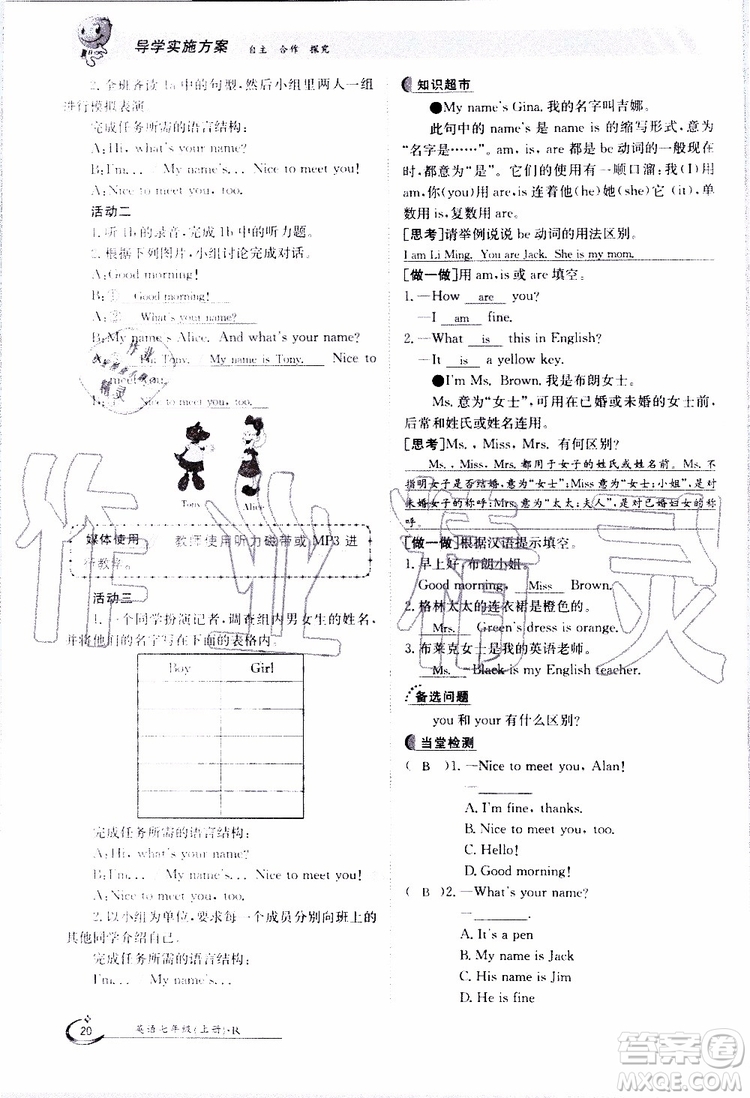 导学实施方案 自主 合作 探究
2. 全班齐读 1a 中的句型,然后小组里两人一组
进行模拟表演
完成任务所需的语言结构:
A: Hi, what's your name?
B: I'm... My name's... Nice to meet you!
A: Nice to meet you, too.
活动二
1. 听 1b 的录音,完成 1b 中的听力题。
2. 根据下列图片,小组讨论完成对话。
A: Good morning!
B: ① Good morning!
A: ② What's your name?
B: My name's Alice. And what's your name?
A: ③ I'm Tony. My name is Tony. Nice to
meet you!
B: Nice to meet you, too.
Tony Alice
媒体使用 教师使用听力磁带或 MP3 进
行教学。
活动三
1. 一个同学扮演记者,调查组内男女生的姓名,
并将他们的名字写在下面的表格内。
Boy Girl
完成任务所需的语言结构:
A: Hi, what's your name?
B: I'm... My name's... Nice to meet you!
A: Nice to meet you, too.
2. 以小组为单位,要求每一个成员分别向班上的
其他同学介绍自己。
完成任务所需的语言结构:
I'm... My name's...
20 英语七年级(上册)·R
知识超市
●My name's Gina. 我的名字叫吉娜。
此句中的 name's 是 name is 的缩写形式,意为
“名字是……”。am, is, are 都是 be 动词的一般现在
时,都意为“是”。它们的使用有一顺口溜:我(I)用
am,你(you)用 are, is 连着他(he)她(she)它(it),单
数用 is,复数用 are。
[思考]请举例说说 be 动词的用法区别。
I am Li Ming. You are Jack. She is my mom.
[做一做]用 am, is 或 are 填空。
1. —How are you?
—I am fine.
2. —What is this in English?
—It is a yellow key.
●I'm Ms. Brown. 我是布朗女士。
Ms. 意为“女士”,可用在已婚或未婚的女士前,
后常和姓氏或姓名连用。
[思考]Ms., Miss, Mrs. 有何区别?
Ms.、Miss、Mrs. 都用于女子的姓氏或姓名前。Ms. 不
指明女子是否结婚,意为“女士”;Miss 意为“女士;小姐”,是对
未婚女子的称呼;Mrs. 意为“太太;夫人”,是对已婚妇女的称
呼。
[做一做]根据汉语提示填空。
1. 早上好,布朗小姐。
Good morning, Miss Brown.
2. 格林太太的连衣裙是橙色的。
Mrs. Green's dress is orange.
3. 布莱克女士是我的英语老师。
Ms. Black is my English teacher.
备选问题
you 和 your 有什么区别?
当堂检测
( B )1. —Nice to meet you, Alan!
—
A. I'm fine, thanks.
B. Nice to meet you, too.
C. Hello!
D. Good morning!
( B )2. —What's your name?
—.
A. It's a pen
B. My name is Jack
C. His name is Jim
D. He is fine
作业精灵
答案圈
MXQE.COM